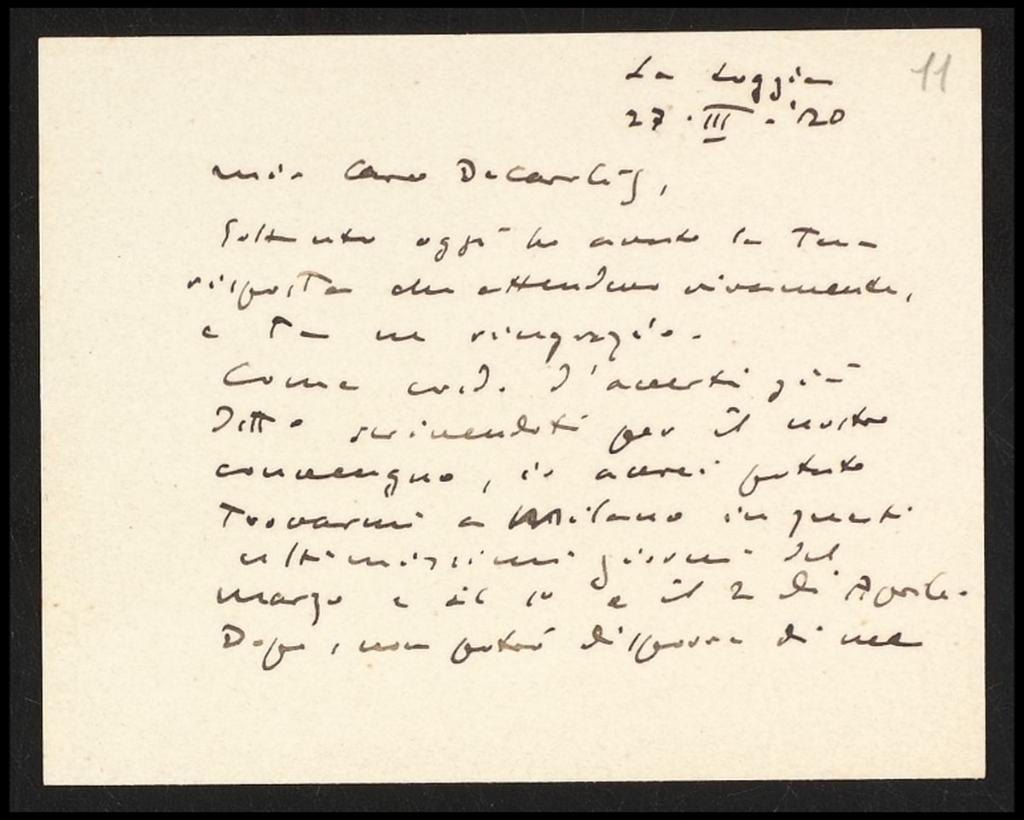 La Loggia
11
27 · III - '20
mio Caro Decarolis,
Soltanto oggi ho avuto la tua
risposta che attendevo vivamente,
e te ne ringrazio.
Come credo d'averti già
detto scrivendoti per il nostro
convegno, io avrei potuto
trovarmi a Milano in questi
ultimissimi giorni del
marzo e il 1º e il 2 di Aprile.
Dopo, non potrò disporre di me